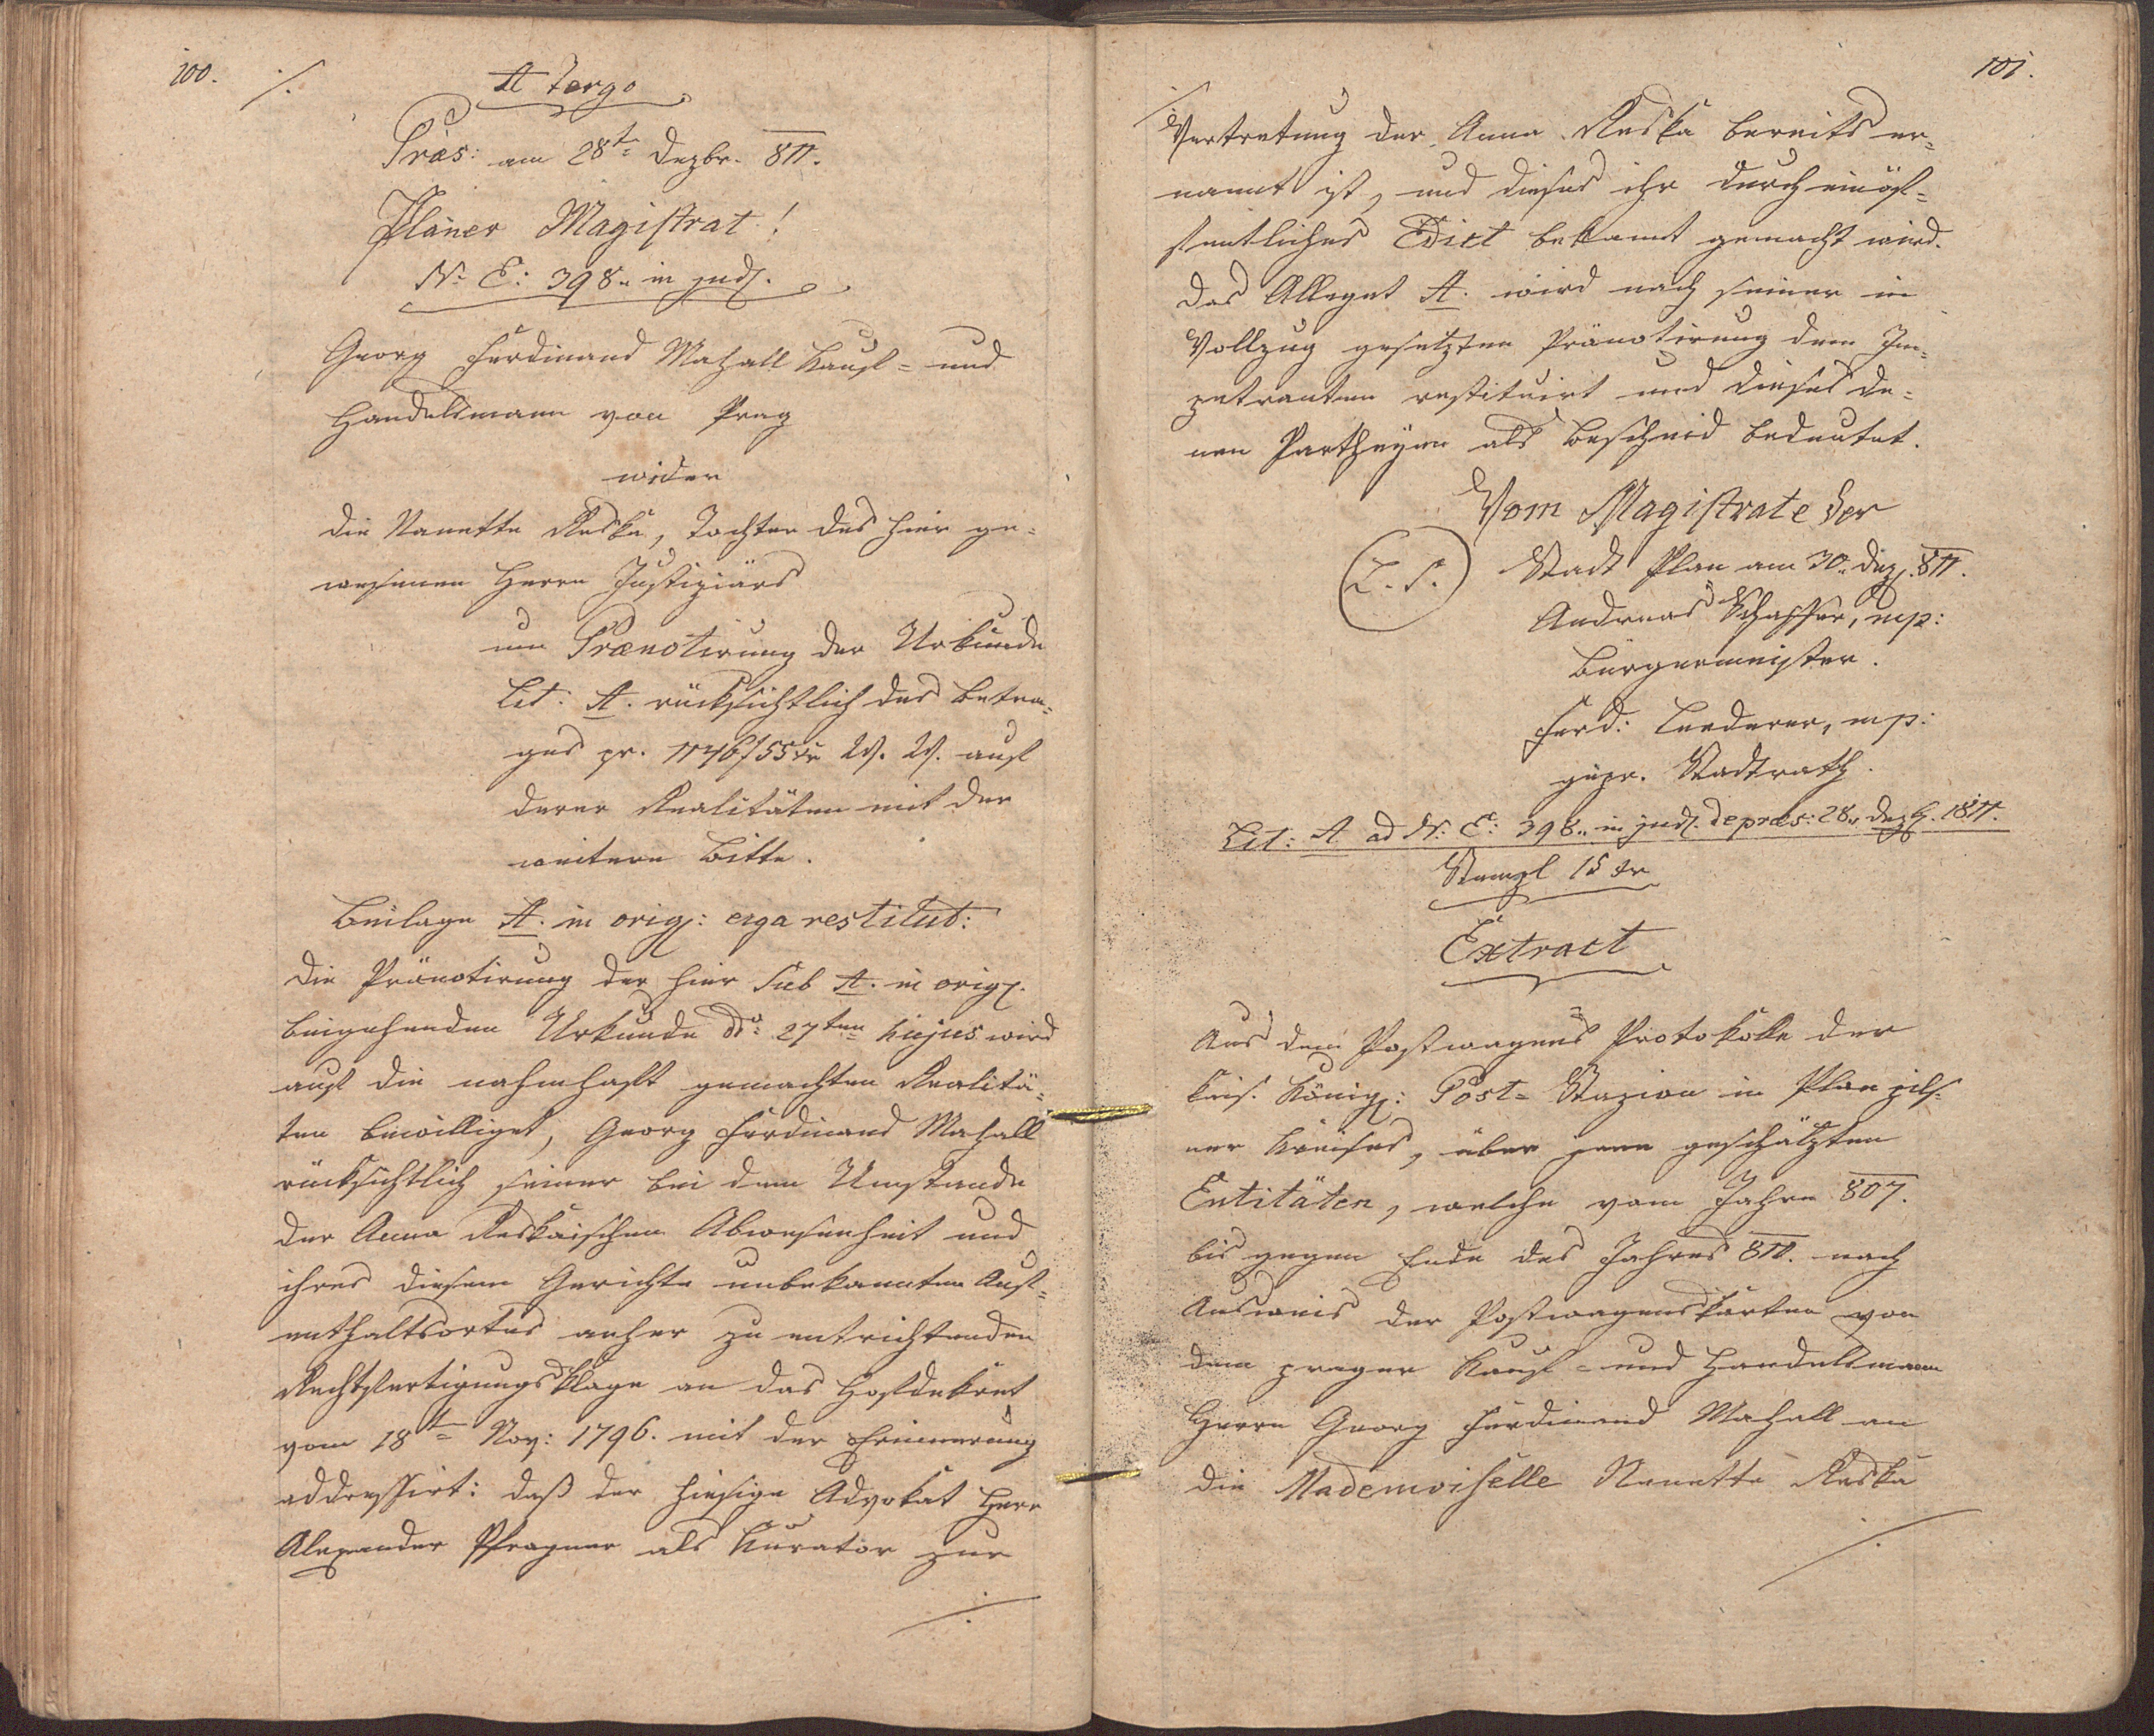 100. ·/.
A Tergo
Präs: am 28t= Dezbr. 811.
Planer Magistrat!
N= E: 398. in jud.
Georg Ferdinand Mahall Kauf= und
Handelsmann von Prag
wider
die Nanette Reska, Tochter des hier ge=
wesenen Herrn Justiziärs
um Prænotirung der Urkunde
Lit: A. rücksichtlich des Betra=
ges pr. 1146f 55xr W. W. auf
derer Realitäten mit der
weitern Bitte.
Beilage A. in orig: erga restitut:
Die Pränotirung der hier sub A. in orig.
beigehenden Urkunde ddo 27ten hujus wird
auf die nahmhaft gemachten Realitä=
ten bewilliget, Georg Ferdinand Mahall
rücksichtlich seiner bei dem Umstande
der Anna Reskaischen Abwesenheit und
ihres diesem Gerichte unbekannten Auf=
enthaltsortes anher zu entrichtenden
Rechtfertigungsklage an das Hofdekret
vom 18t= Nov: 1796. mit der Erinnerung
addressirt: daß der hiesige Advokat Herr
Alexander Pfragner als Kurator zur
·/.
101.
·/.
Vertretung der Anna Reska bereits er=
nannt ist, und dieses ihr durch ein öf=
fentliches Edict bekannt gemacht wird.
Das Allegat A. wird nach seiner in
Vollzug gesetzten Pränotirung dem Im=
petranten restituirt und dieses de=
nen Partheyen als Bescheid bedeutet.
Vom Magistrate der
L. S. Stadt Plan am 30. Dez. 811.
Andreas Schaffer, mp:
Bürgermeister.
Ferd: Lederer, mp:
gepr. Stadtrath.
Lit: A ad N: E: 398. in jud. de præs: 28. Dezb. 1811.
Stempl 15 xr
Extract
Aus dem Postwagens Protokolle der
kais. königl: Post= Stazion in Plan pils=
ner Kreises, über jene geschätzten
Entitäten, welche vom Jahre 807.
bis gegen Ende des Jahres 811. nach
Ausweis der Postwagenskarten von
dem prager Kauf= und Handelsmann
Herrn Georg Ferdinand Mahall an
die Mademoiselle Nanette Reska
·/.